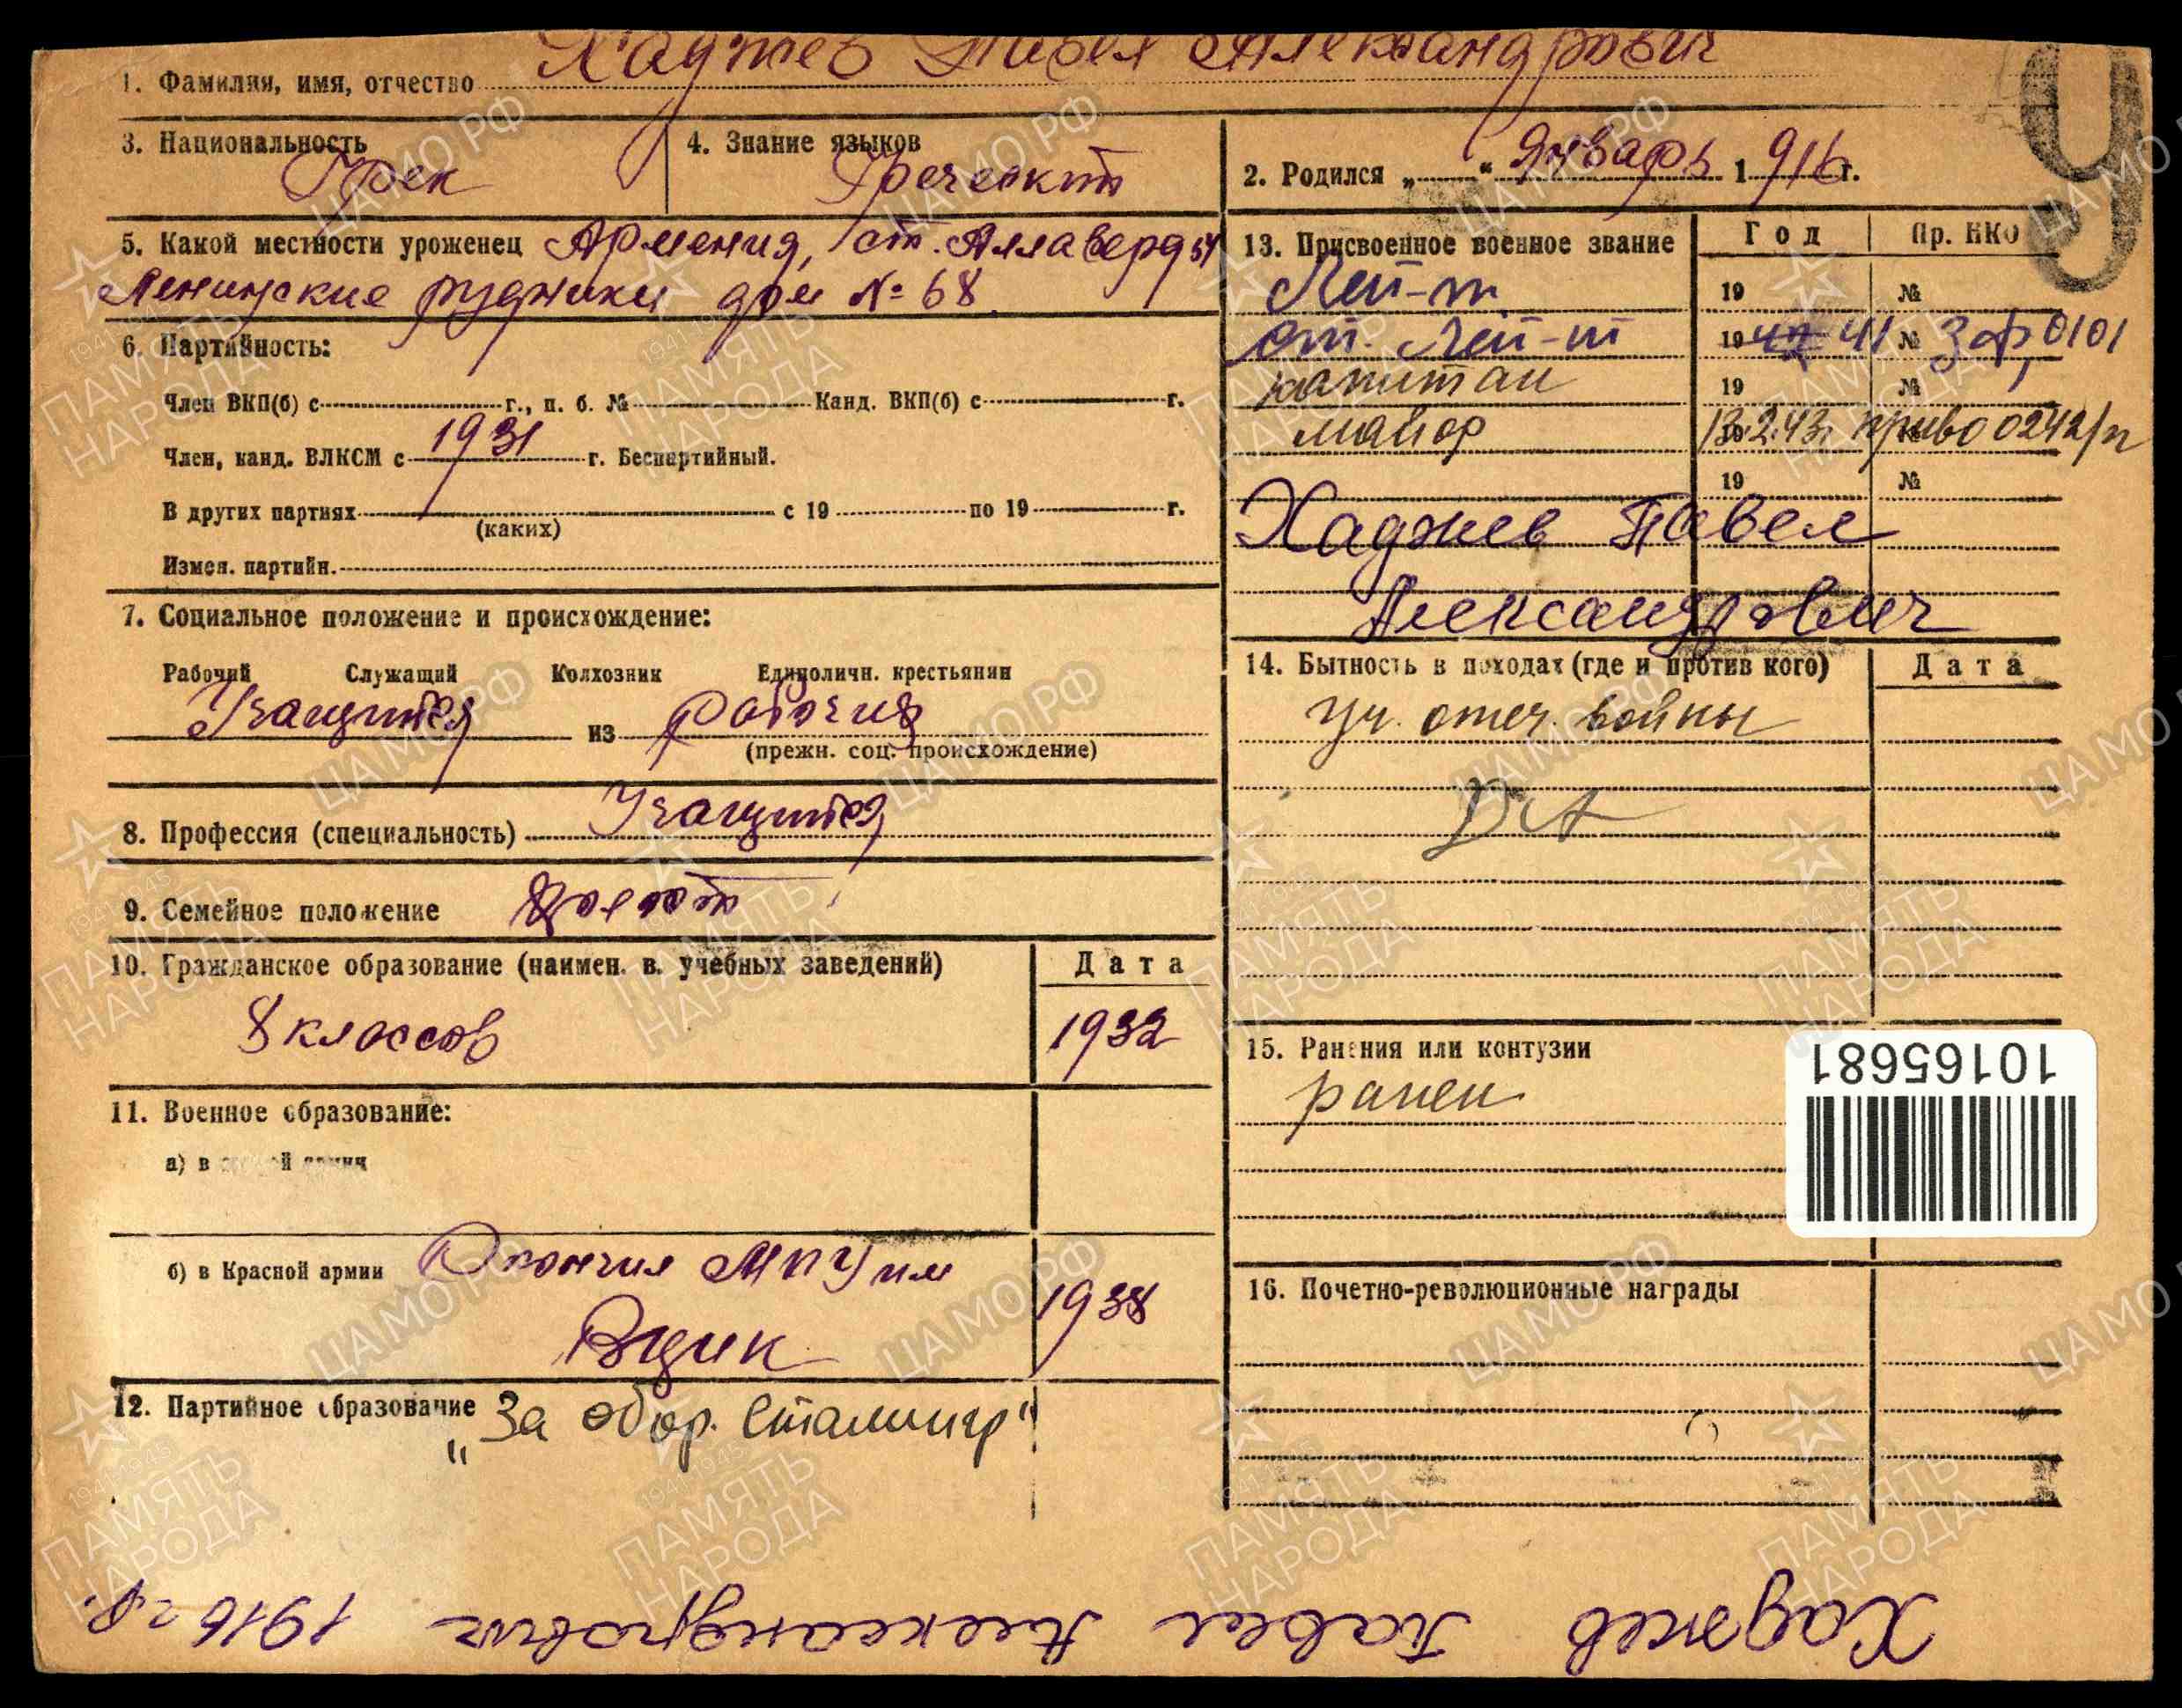 1. Фамилия, имя, отчество Хаджиев Павел Александрович
3. Национальность Грек
4. Знание языков Греческий
2. Родился „ “ Январь 1916 г.
5. Какой местности уроженец Армения, ст. Аллаверды
Ленинские рудники дом № 68
6. Партийность:
Член ВКП(б) с г., п. б. № Канд. ВКП(б) с г.
Член, канд. ВЛКСМ с 1931 г. Беспартийный.
В других партиях с 19 по 19 г.
(каких)
Измен. партийн.
7. Социальное положение и происхождение:
Рабочий Служащий Колхозник Единоличн. крестьянин
Учащийся из рабочих
(прежн. соц. происхождение)
8. Профессия (специальность) Учащийся
9. Семейное положение холост
10. Гражданское образование (наимен. в. учебных заведений) Дата
8 классов 1932
11. Военное образование:
а) в
б) в Красной армии Окончил МПУ им
Вцик 1938
12. Партийное образование
„За обор. Сталингр"
13. Присвоенное военное звание Год Пр. НКО
Лей-т 19 №
ст. Лей-т 19 41 № Зф, 0101
капитан 19 №
майор 13.2.43г приво 0242/п
19 №
Хаджиев Павел
Александрович
14. Бытность в походах (где и против кого) Дата
уч. отеч. войны
ДА
15. Ранения или контузии
ранен
10165681
16. Почетно-революционные награды
Хаджиев Павел Александрович 1916 г.р.
ЦАМО.РФ
1941-1945
ПАМЯТЬ
НАРОДА